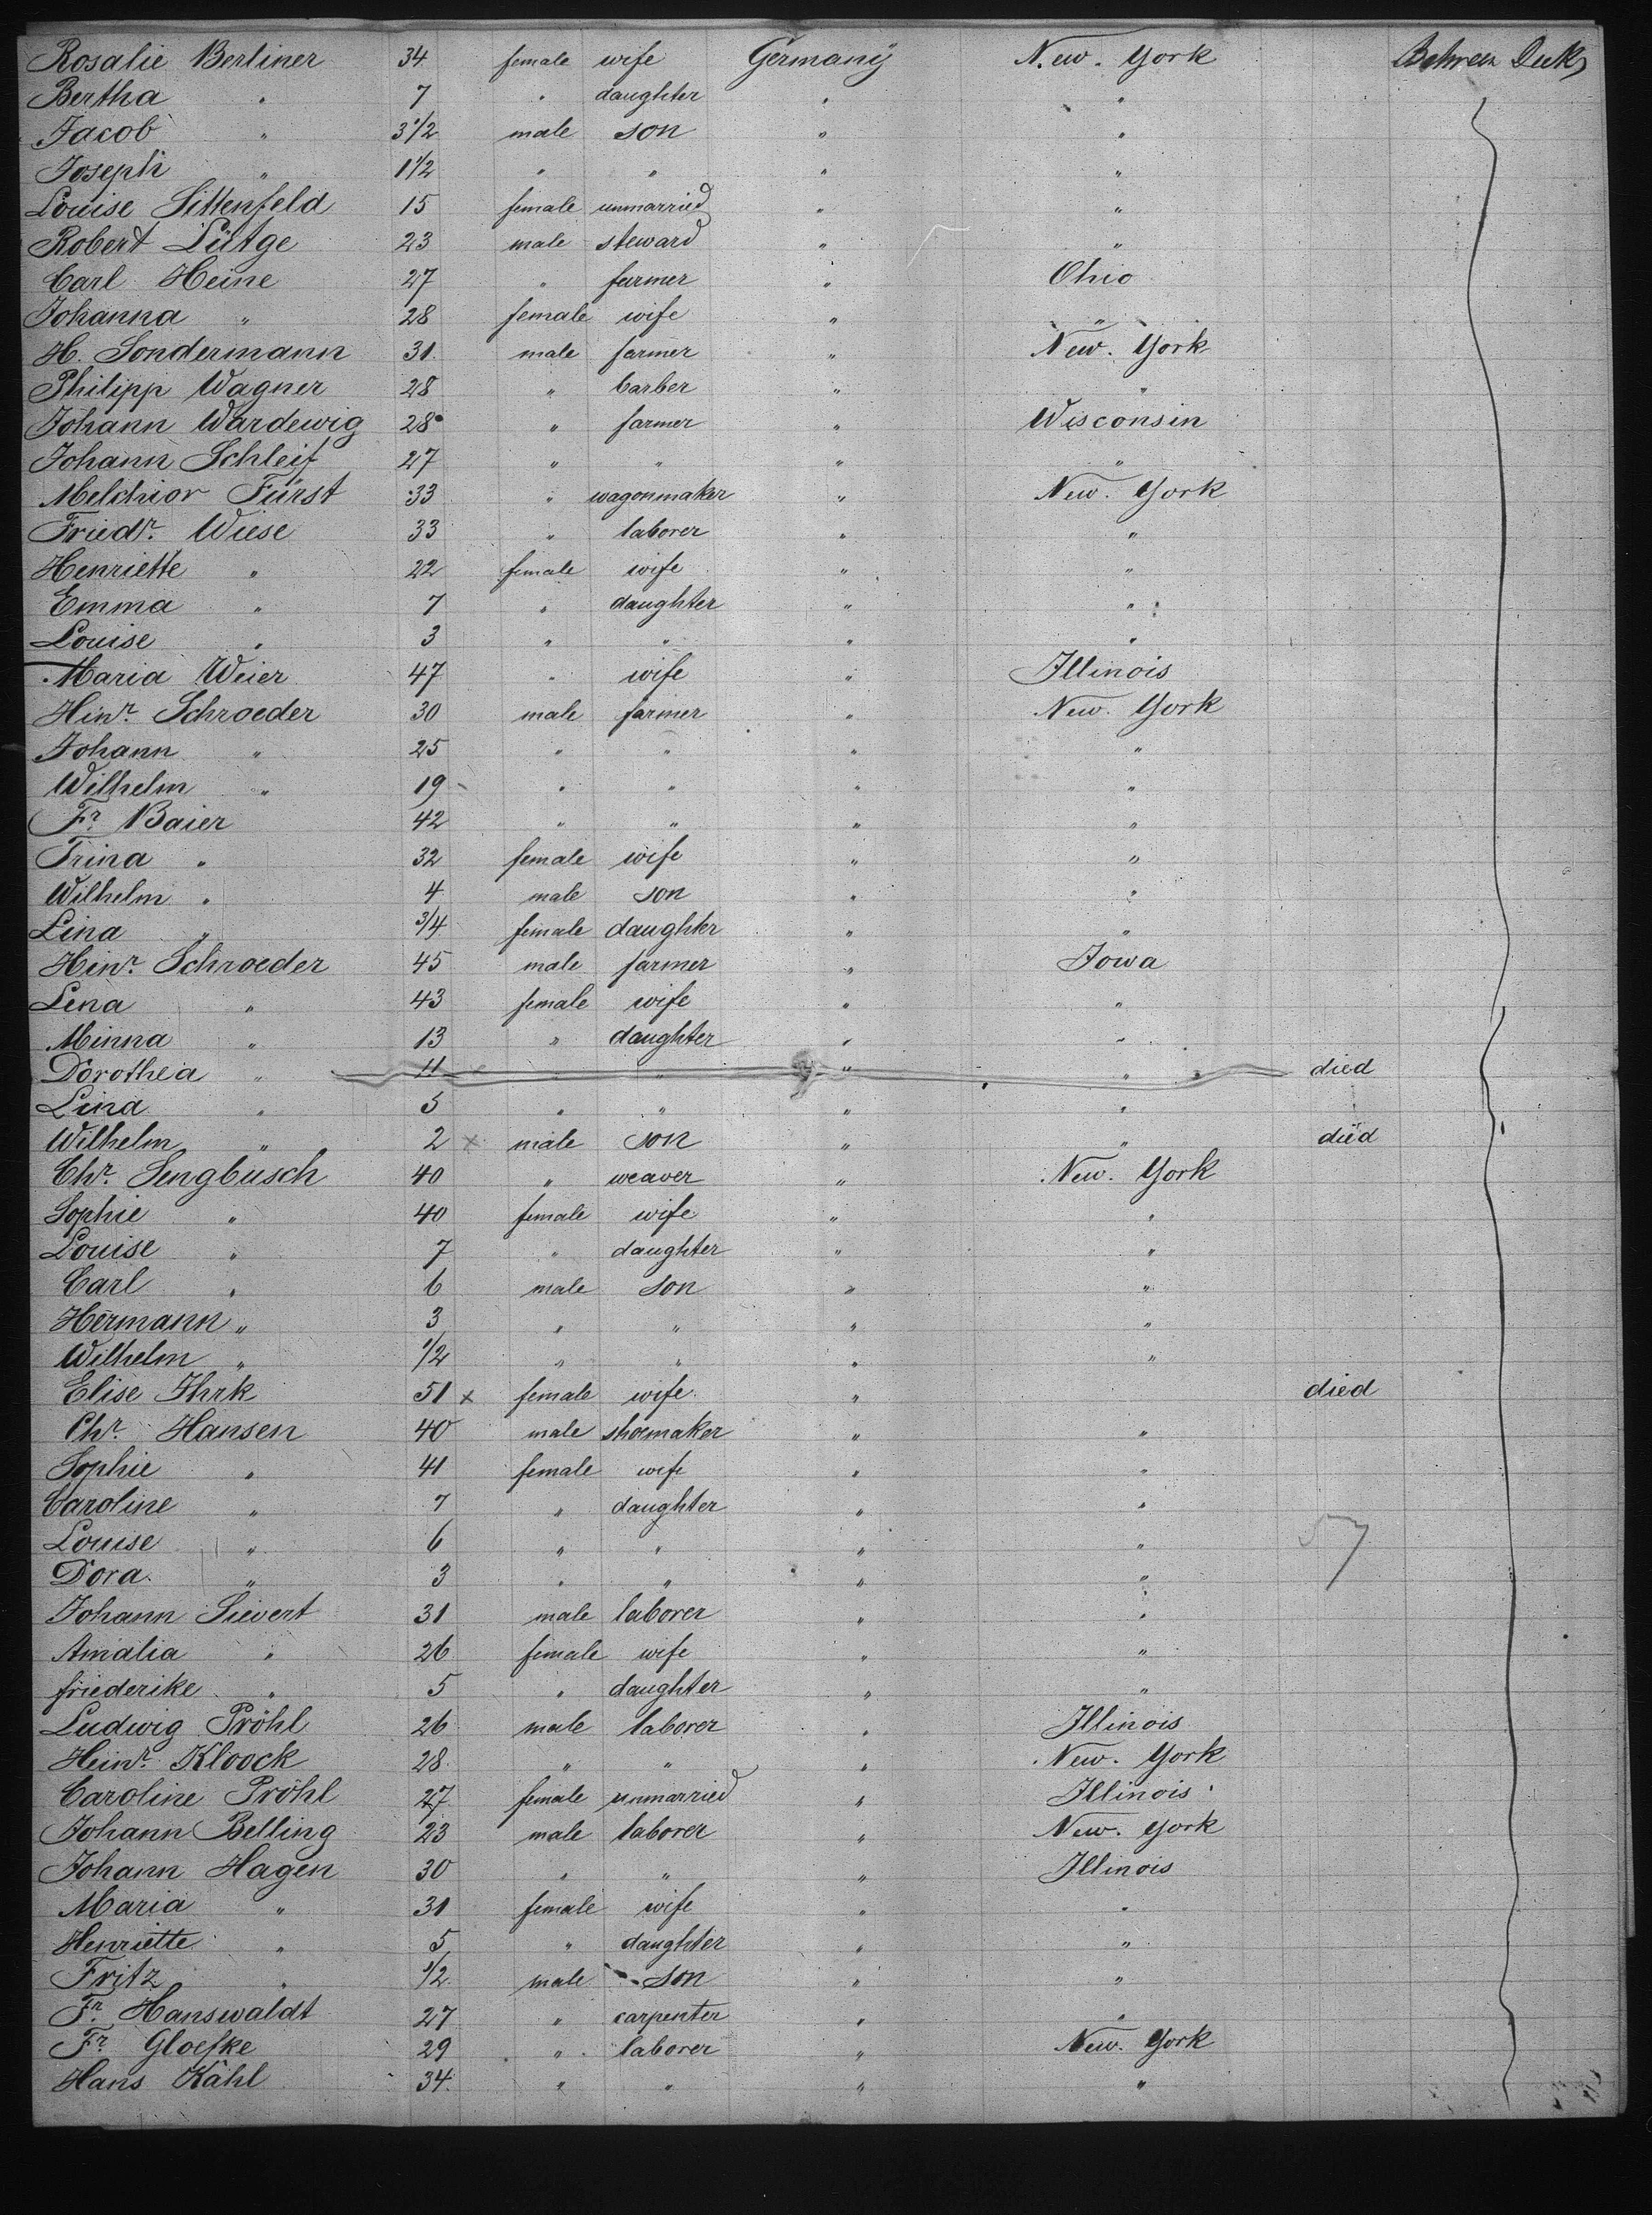 Rosalie Berliner 34 female wife Germany New. York Between Deck
Bertha " 7 " daughter " "
Jacob " 3 1/2 male son " "
Joseph " 1 1/2 " " " "
Louise Sittenfeld 15 female unmarried " "
Robert Lütge 23 male steward " "
Carl Heine 27 " farmer " Ohio
Johanna " 28 female wife " "
H. Sondermann 31. male farmer " New. York
Philipp Wagner 28 " barber " "
Johann Wardewig 28 " farmer " Wisconsin
Johann Schleif 27 " " " "
Melchior Fürst 33 " wagonmaker " New. York
Friedr. Wiese 33 " laborer " "
Henriette " 22 female wife " "
Emma " 7 " daughter " "
Louise " 3 " " " "
Maria Weier 47 " wife " Illinois
Hinr. Schroeder 30 male farmer " New. York
Johann " 25 " " " "
Wilhelm " 19 " " " "
Fr. Baier 42 " " " "
Trina " 32 female wife " "
Wilhelm " 4 male son " "
Lina " 3/4 female daughter " "
Hinr. Schroeder 45 male farmer " Iowa
Lena " 43 female wife " "
Minna " 13 " daughter " "
Dorothea " 11 " " " " died
Lina " 5 " " " "
Wilhelm " 2 x male son " " died
Chr. Sengbusch 40 " weaver " New. York
Sophie " 40 female wife " "
Louise " 7 " daughter " "
Carl " 6 male son " "
Hermann " 3 " " " "
Wilhelm " 1/2 " " " "
Elise Ihrk 51 x female wife " died
Chr. Hansen 40 male shoemaker " "
Sophie " 41 female wife " "
Caroline " 7 " daughter " "
Louise " 6 " " " " 57
Dora. " 3 " " " "
Johann Sievert 31 male laborer " "
Amalia " 26 female wife " "
friederike " 5 " daughter " "
Ludwig Pröhl 26 male laborer " Illinois
Heinr. Kloock 28. " " " New. York
Caroline Pröhl 27 female unmarried " Illinois
Johann Belling 23 male laborer " New. York
Johann Hagen 30 " " " Illinois
Maria " 31 female wife " "
Henriette " 5 " daughter " "
Fritz " 1/2 male son " "
Fr. Hanswaldt 27 " carpenter " "
Fr. Gloefke 29 " laborer " New. York
Hans Kähl 34. " " " "